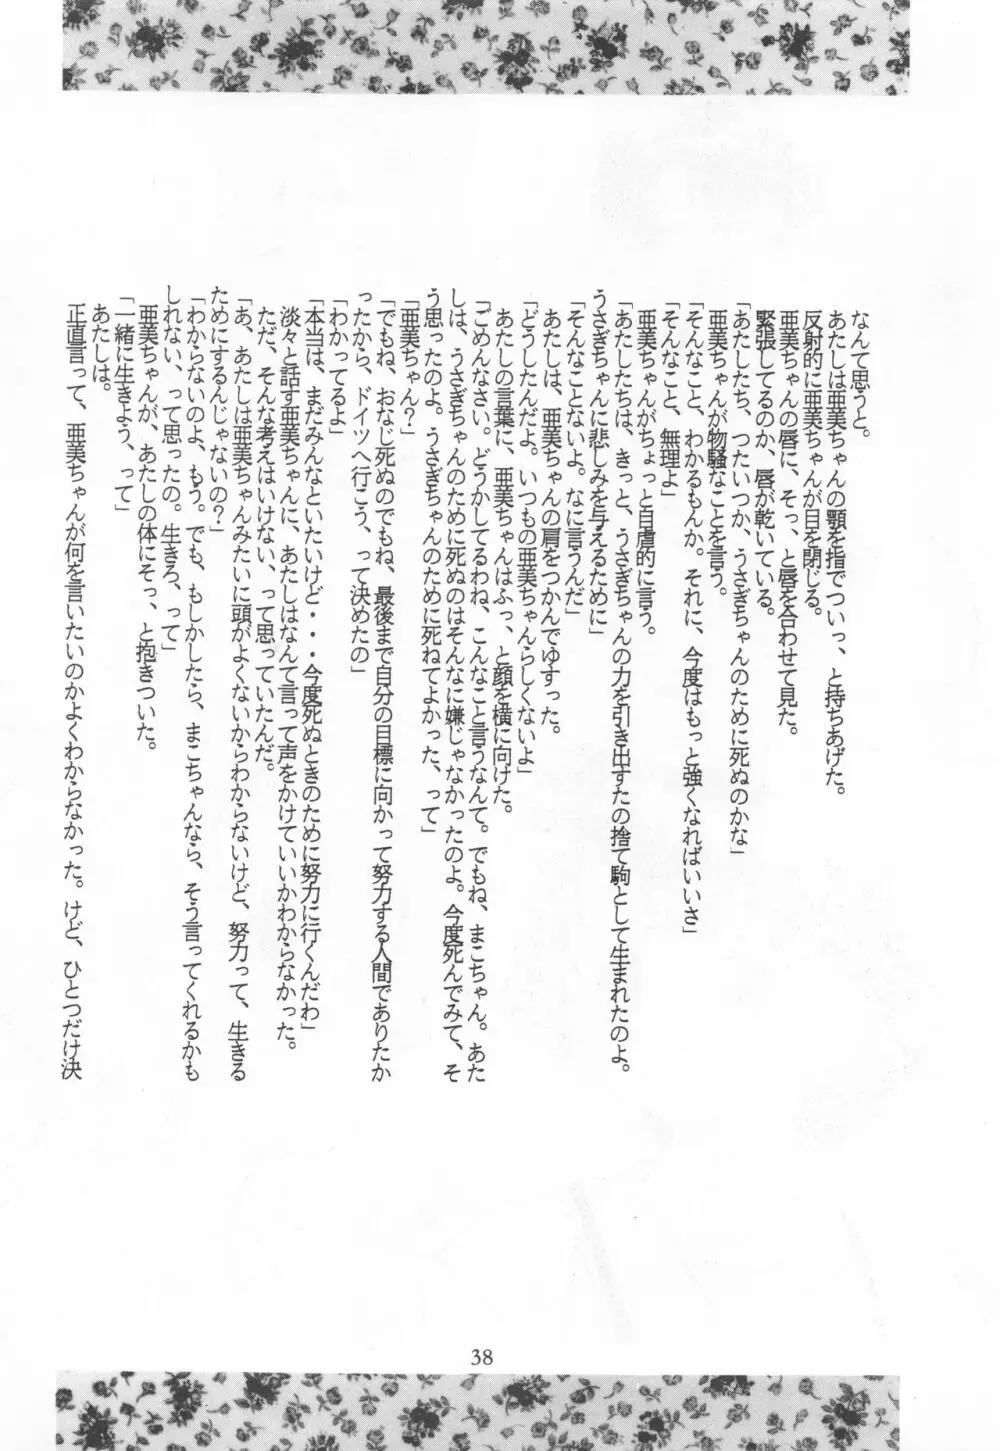 なんて思うと。
あたしは亜美ちゃんの顎を指でついっ、と持ちあげた。
反射的に亜美ちゃんが目を閉じる。
亜美ちゃんの唇に、そっ、と唇を合わせて見た。
緊張してるのか、唇が乾いている。
「あたしたち、つたいつか、うさぎちゃんのために死ぬのかな」
亜美ちゃんが物騒なことを言う。
「そんなこと、わかるもんか。それに、今度はもっと強くなればいいさ」
「そんなこと、無理よ」
亜美ちゃんがちょっと自虐的に言う。
「あたしたちは、きっと、うさぎちゃんの力を引き出すたの捨て駒として生まれたのよ。
うさぎちゃんに悲しみを与えるために」
「そんなことないよ。なに言うんだ」
あたしは、亜美ちゃんの肩をつかんでゆすった。
「どうしたんだよ。いつもの亜美ちゃんらしくないよ」
あたしの言葉に、亜美ちゃんはふっ、と顔を横に向けた。
「ごめんなさい。どうかしてるわね、こんなこと言うなんて。でもね、まこちゃん。あた
しは、うさぎちゃんのために死ぬのはそんなに嫌じゃなかったのよ。今度死んでみて、そ
う思ったのよ。うさぎちゃんのために死ねてよかった、って」
「亜美ちゃん？」
「でもね、おなじ死ぬのでもね、最後まで自分の目標に向かって努力する人間でありたか
ったから、ドイツへ行こう、って決めたの」
「わかってるよ」
「本当は、まだみんなといたいけど・・・今度死ぬときのために努力に行くんだわ」
淡々と話す亜美ちゃんに、あたしはなんて言って声をかけていいかわからなかった。
ただ、そんな考えはいけない、って思っていたんだ。
「あ、あたしは亜美ちゃんみたいに頭がよくないからわからないけど、努力って、生きる
ためにするんじゃないの？」
「わからないのよ、もう。でも、もしかしたら、まこちゃんなら、そう言ってくれるかも
しれない、って思ったの。生きろ、って」
亜美ちゃんが、あたしの体にそっ、と抱きついた。
「一緒に生きよう、って」
あたしは。
正直言って、亜美ちゃんが何を言いたいのかよくわからなかった。けど、ひとつだけ決
38